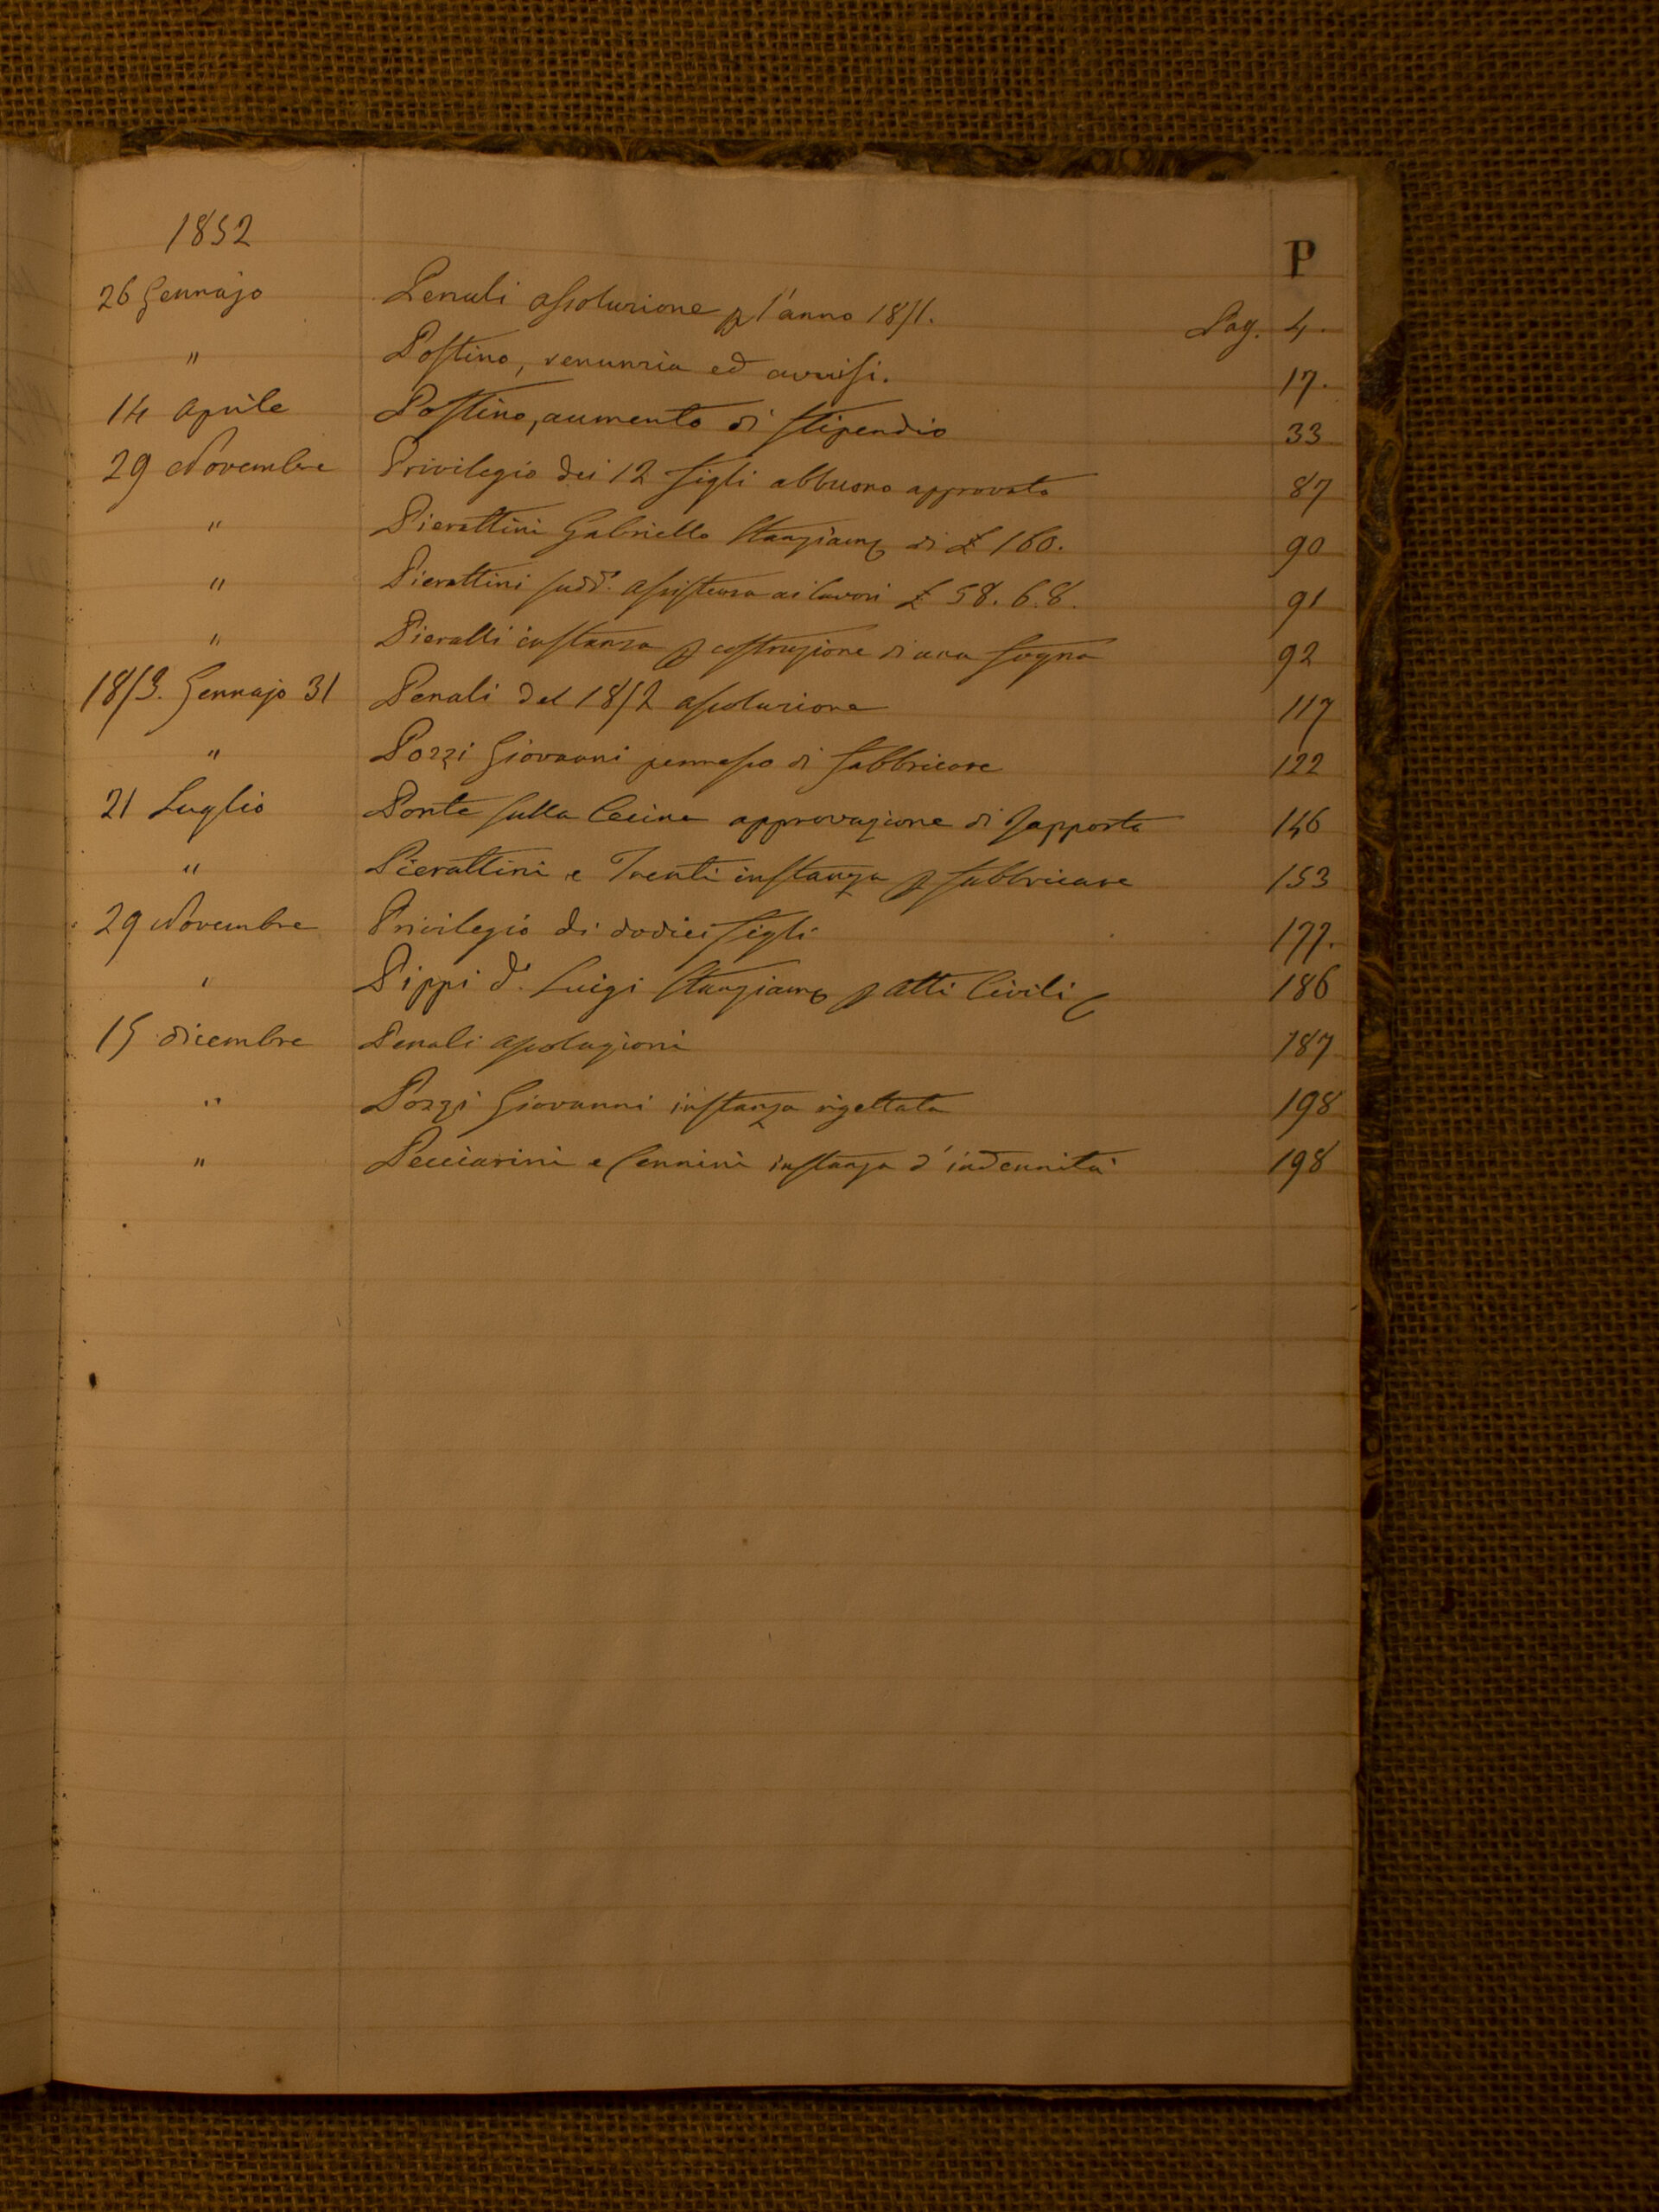 1852
P
26 Gennajo Penali assoluzione p l'anno 1851. Pag. 4.
" Postino, renunzia ed avvisi. 17.
14 Aprile Postino, aumento di stipendio 33
29 Novembre Privilegio dei 12 figli abbuono approvato 87
" Pierattini Gabriello stanziam di £ 160. 90
" Pierattini sudd. assistenza ai lavori £ 58. 6. 8. 91
" Pieralli instanza p costruzione di una fogna 92
1853. Gennajo 31 Penali del 1852 assoluzione 117
" Pozzi Giovanni permesso di fabbricare 122
21 Luglio Ponte sulla Cecina approvazione di rapporto 146
" Pierattini e Trenti instanza p fabbricare 153
29 Novembre Privilegio di dodici figli 177.
" Pippi d. Luigi stanziam p atti Civili 186
15 dicembre Penali assoluzioni 187
" Pozzi Giovanni instanza rigettata 198
" Pecciarini e Cennini instanza d'indennità 198